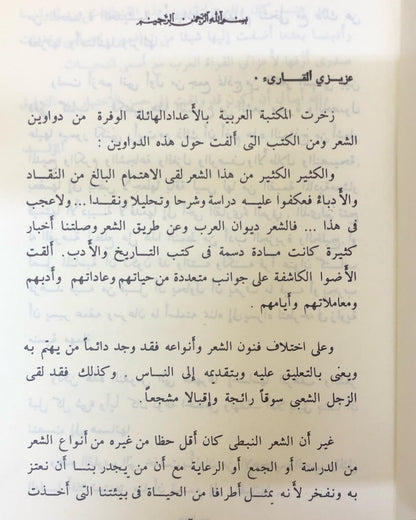 بسم الله الرحمن الرحيم
عزيزي القارىء .
زخرت المكتبة العربية بالأعداد الهائلة الوفرة من دواوين
الشعر ومن الكتب التى ألفت حول هذه الدواوين :
والكثير الكثير من هذا الشعر لقى الاهتمام البالغ من النقاد
والأدباء فعكفوا عليه دراسة وشرحا وتحليلا ونقدا ... ولا عجب
في هذا ... فالشعر ديوان العرب وعن طريق الشعر وصلتنا أخبار
كثيرة كانت مادة دسمة في كتب التاريخ والأدب . ألقت
الأضوا الكاشفة على جوانب متعددة من حياتهم وعاداتهم وأدبهم
ومعاملاتهم وأيامهم .
وعلى اختلاف فنون الشعر وأنواعه فقد وجد دائماً من يهتم به
ويعنى بالتعليق عليه وبتقديمه إلى النـاس . وكذلك فقد لقى
الزجل الشعبى سوقاً رائجة وإقبالا مشجعاً .
غير أن الشعر النبطى كان أقل حظا من غيره من أنواع الشعر
من الدراسة أو الجمع أو الرعاية مع أن من يجدر بنـا أن نعتز
به ونفخر لأنه يمثل أطرافا من الحياة في بيئتنا التى أخذت